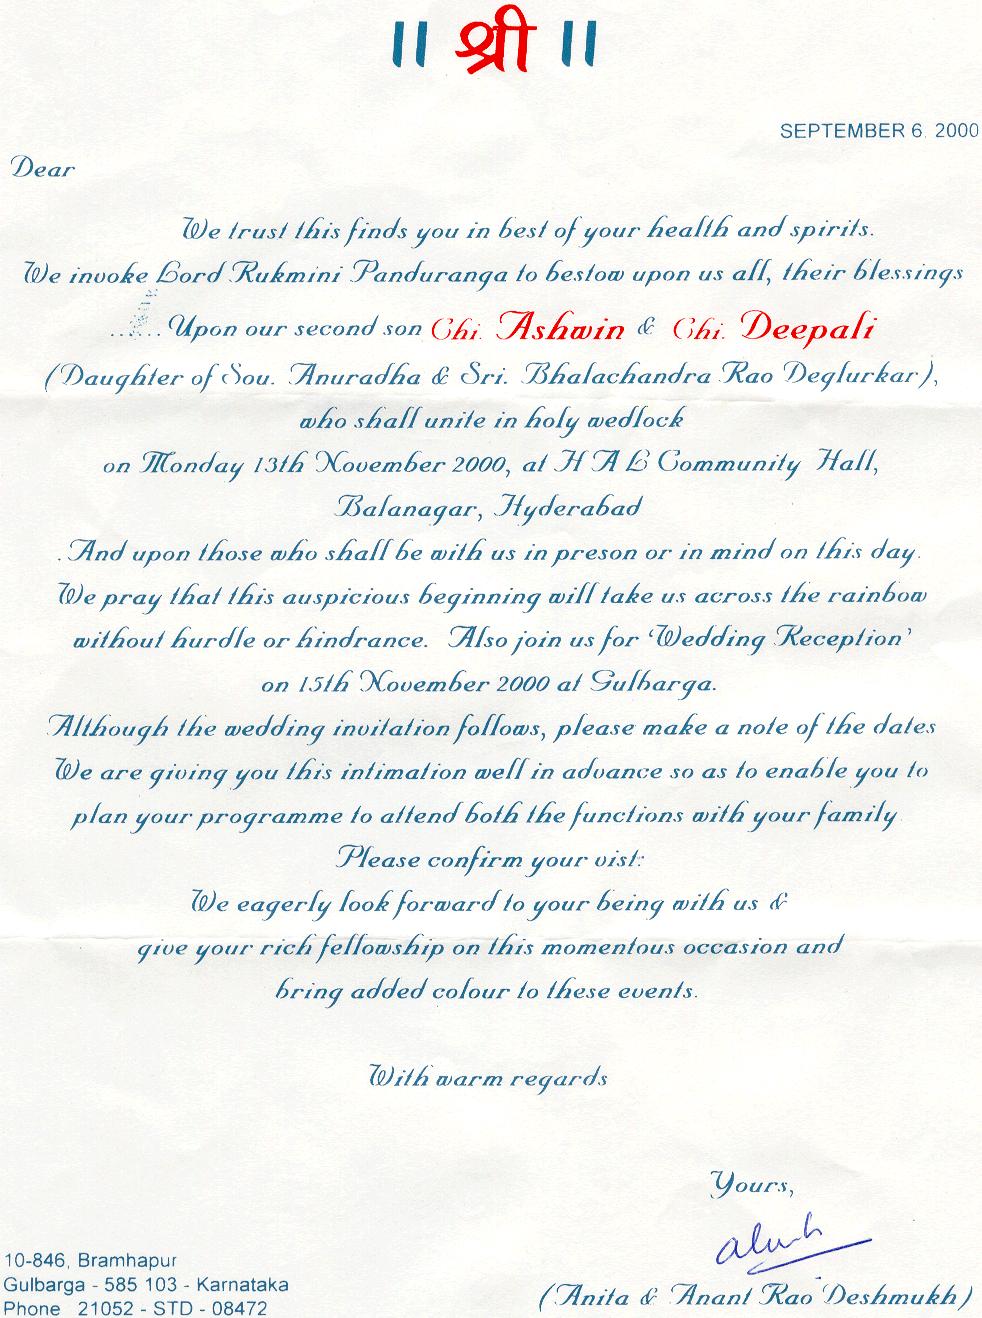 ॥ श्री ॥
SEPTEMBER 6, 2000
Dear
We trust this finds you in best of your health and spirits.
We invoke Lord Rukmini Panduranga to bestow upon us all, their blessings
...... Upon our second son Chi. Ashwin & Chi. Deepali
(Daughter of Sou. Anuradha & Sri. Bhalachandra Rao Deglurkar),
who shall unite in holy wedlock
on Monday 13th November 2000, at H A L Community Hall,
Balanagar, Hyderabad
. And upon those who shall be with us in preson or in mind on this day.
We pray that this auspicious beginning will take us across the rainbow
without hurdle or hindrance. Also join us for ‘Wedding Reception’
on 15th November 2000 at Gulbarga.
Although the wedding invitation follows, please make a note of the dates
We are giving you this intimation well in advance so as to enable you to
plan your programme to attend both the functions with your family
Please confirm your vist:
We eagerly look forward to your being with us &
give your rich fellowship on this momentous occasion and
bring added colour to these events.
With warm regards
Yours,
(Anita & Anant Rao Deshmukh)
10-846, Bramhapur
Gulbarga - 585 103 - Karnataka
Phone 21052 - STD - 08472